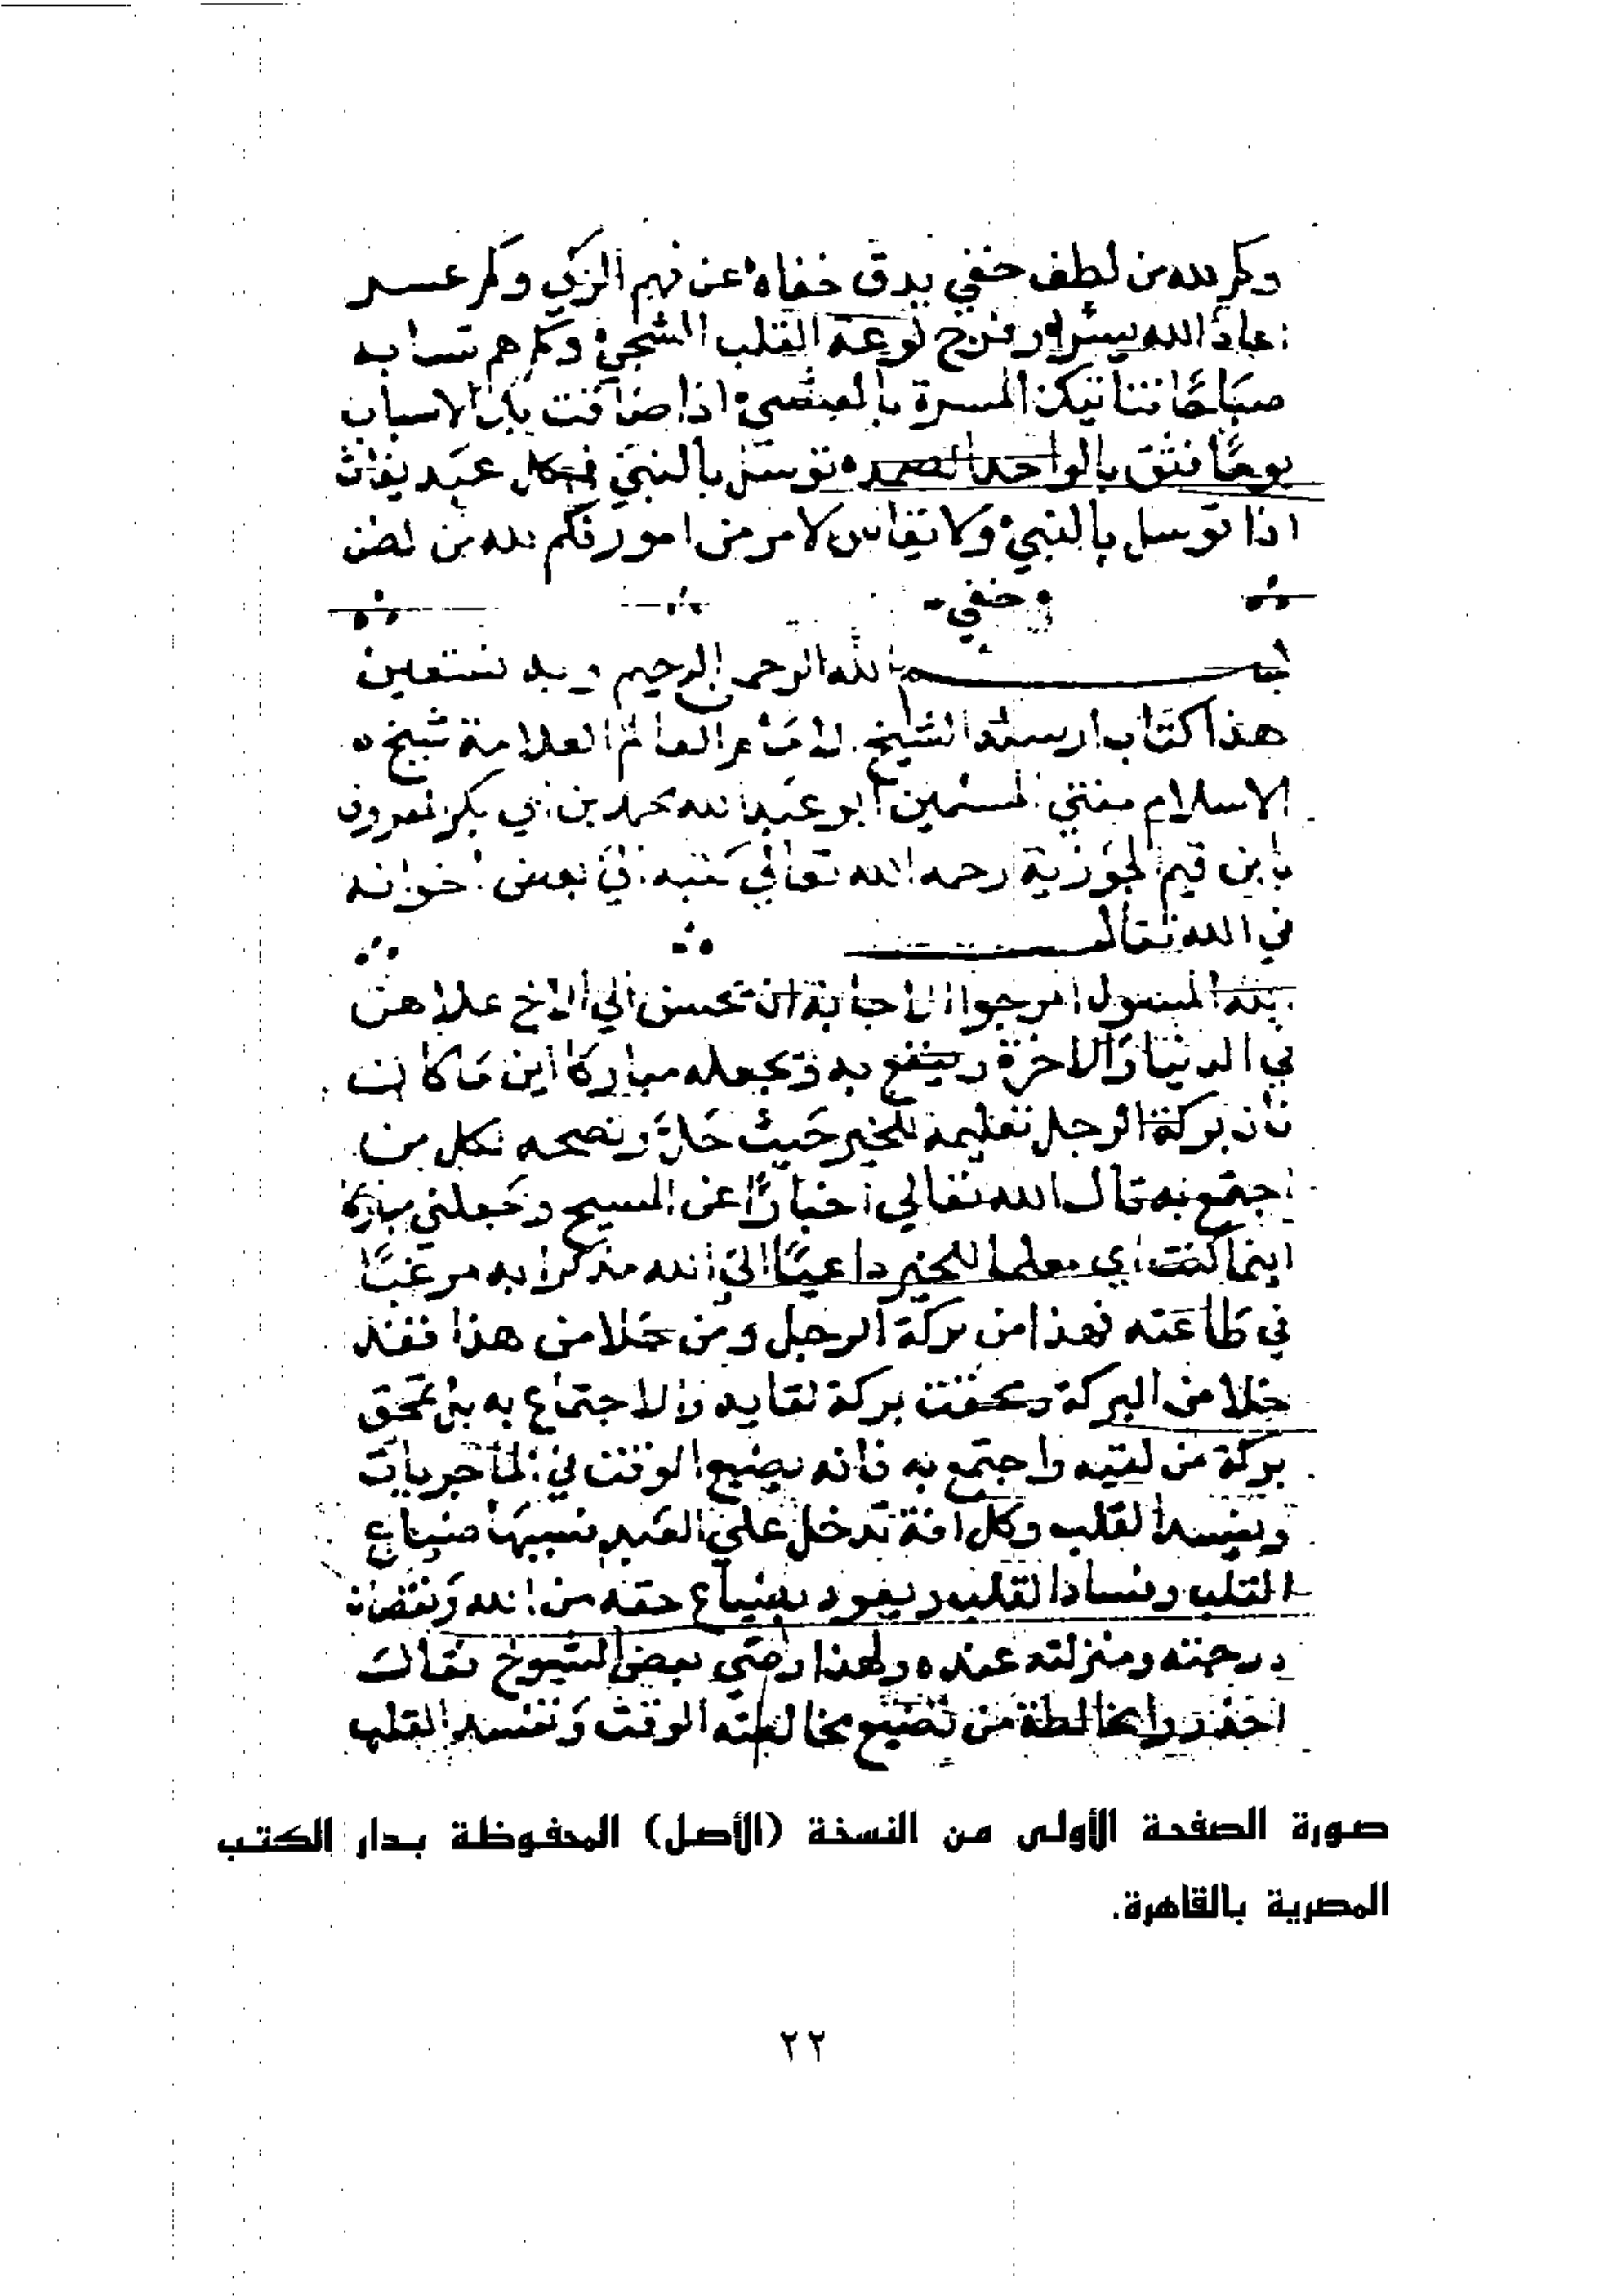 وكم لله من لطف خفي يدق خفاه عن فهم الزكي وكم عسر
اعاد الله يسرا وفرج لوعة القلب الشجي وكم هم تسا به
صباحًا فتاتيك المسرة بالعشي اذا ضاقت بك الاسباب
يومًا فثق بالواحد الصمد توسل بالنبي فكل عبد يغاث
اذا توسل بالنبي ولا لامر من امور فكم لله من لطف
خفي
بسم الله الرحمن الرحيم وبه نستعين
هذا كتاب ارسله الشيخ الامام العالم العلامة شيخ
الاسلام مفتي المسلمين ابو عبد الله محمد بن ابي بكر المعروف
بابن قيم الجوزية رحمه الله تعالي كتبه الي بعض اخوانه
في الله تعالى
الله المسول المرجوا الاجابة ان يحسن الي الاخ علا
في الدنيا والاخرة وينفع به ويجعله مباركا اين ما كان
فان بركة الرجل تعليمه للخير حيث حل ونصحه لكل من
اجتمع به قال الله تعالي اخبارًا عن المسيح وجعلني مباركا
اينما كنت اي معلما للخير داعيًا الي الله مذكرا به مرغبًا
في طاعته فهذا من بركة الرجل ومن خلا من هذا فقد
خلا من البركة ومحقت بركة لقايه والاجتماع به بل تمحق
بركة من لقيه واجتمع به فانه يضيع الوقت في الماجريات
ويفسد القلب وكل افة تدخل علي العبد فسببها ضياع
القلب وفساد القلب ويعود بضياع حقه من الله ونقصان
درجته ومنزلته عنده ولهذا وصي بعض الشيوخ فقال
احذروا مخالطة من تضيع مخالطته الوقت وتفسد القلب
صورة الصفحة الأولى من النسخة (الأصل) المحفوظة بدار الكتب
المصرية بالقاهرة.
٢٢